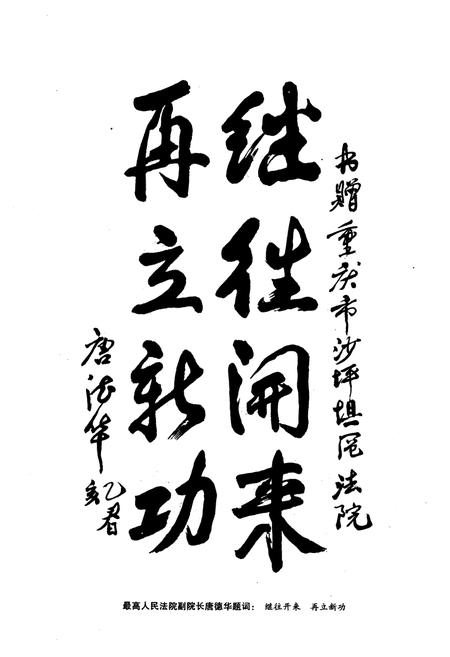 书赠重庆市沙坪埧区法院
继往開来
再立新功
唐德华
最高人民法院副院长唐德华题词： 继往开来 再立新功